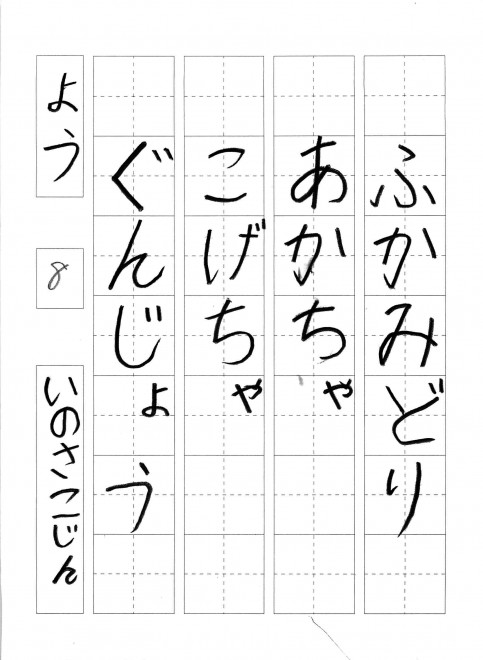 ふかみどり
あかちゃ
こげちゃ
ぐんじょう
よう
8
いのさこじん